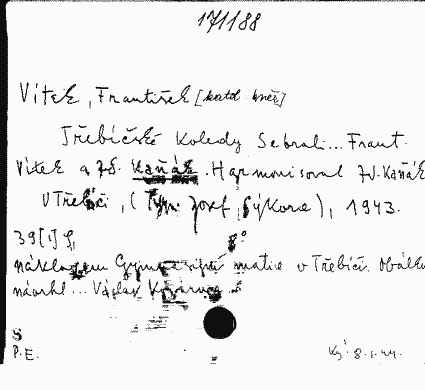 171188
Vítek, František [katol. kněz]
Třebíčské koledy Sebrali... Frant.
Vítek a Zd. Kaňák. Harmonisoval Zd. Kaňák
V Třebíči, (Typ. Josef Sýkora), 1943.
39[1] s. 8°
nákladem Gymnasijní matice v Třebíči. Obálku
návrhl... Václav
S
P.E.
Ký. 8.1.44.